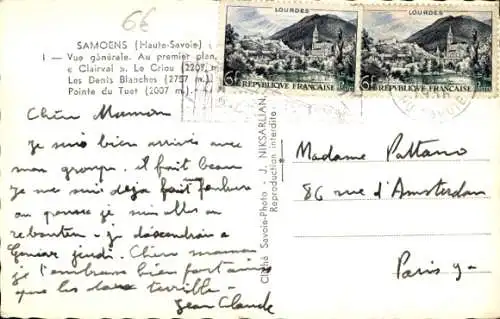 6€
SAMOENS (Haute-Savoie)
1 — Vue générale. Au premier plan,
« Clairval ». Le Criou (2207 m.)
Les Dents Blanches (2757 m.)
Pointe du Tuet (2007 m.)
LOURDES
6F REPVBLIQVE FRANÇAISE
LOURDES
6F REPVBLIQVE FRANÇAISE
Chère Maman
Je suis bien arrivé avec
mon groupe. Il fait beau
Je me suis déja fait
au pouce je suis allé au
je descendrai à
jeudi. Chère maman
je t'embrasse bien
que les
terrible
Jean Claude
Cliché Savoie-Photo - J. NIKSARLIAN
Reproduction interdite
Madame Pattano
86 rue d'Amsterdam
Paris 9